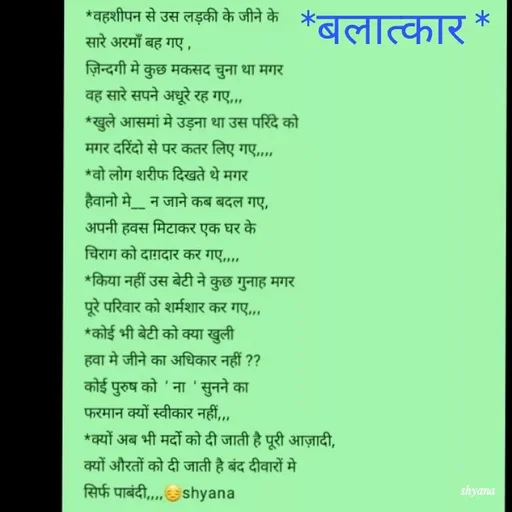 *बलात्कार *
*वहशीपन से उस लड़की के जीने के
सारे अरमाँ बह गए ,
ज़िन्दगी मे कुछ मकसद चुना था मगर
वह सारे सपने अधूरे रह गए,,,
*खुले आसमां मे उड़ना था उस परिंदे को
मगर दरिंदो से पर कतर लिए गए,,,,
*वो लोग शरीफ दिखते थे मगर
हैवानो मे__ न जाने कब बदल गए,
अपनी हवस मिटाकर एक घर के
चिराग को दाग़दार कर गए,,,,
*किया नहीं उस बेटी ने कुछ गुनाह मगर
पूरे परिवार को शर्मशार कर गए,,,
*कोई भी बेटी को क्या खुली
हवा मे जीने का अधिकार नहीं ??
कोई पुरुष को ' ना ' सुनने का
फरमान क्यों स्वीकार नहीं,,,
*क्यों अब भी मर्दो को दी जाती है पूरी आज़ादी,
क्यों औरतों को दी जाती है बंद दीवारों मे
सिर्फ पाबंदी,,,,😔shyana
shyana